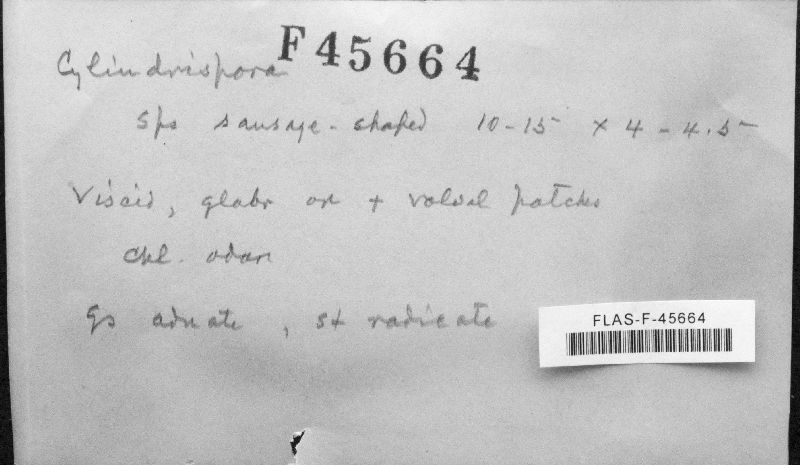 Cylindrispora F45664
Sps sausage-shaped 10-15 x 4-4.5
Viscid, glabr or + volval patches
Chl. odor
Gs adnate, st radicate
FLAS-F-45664